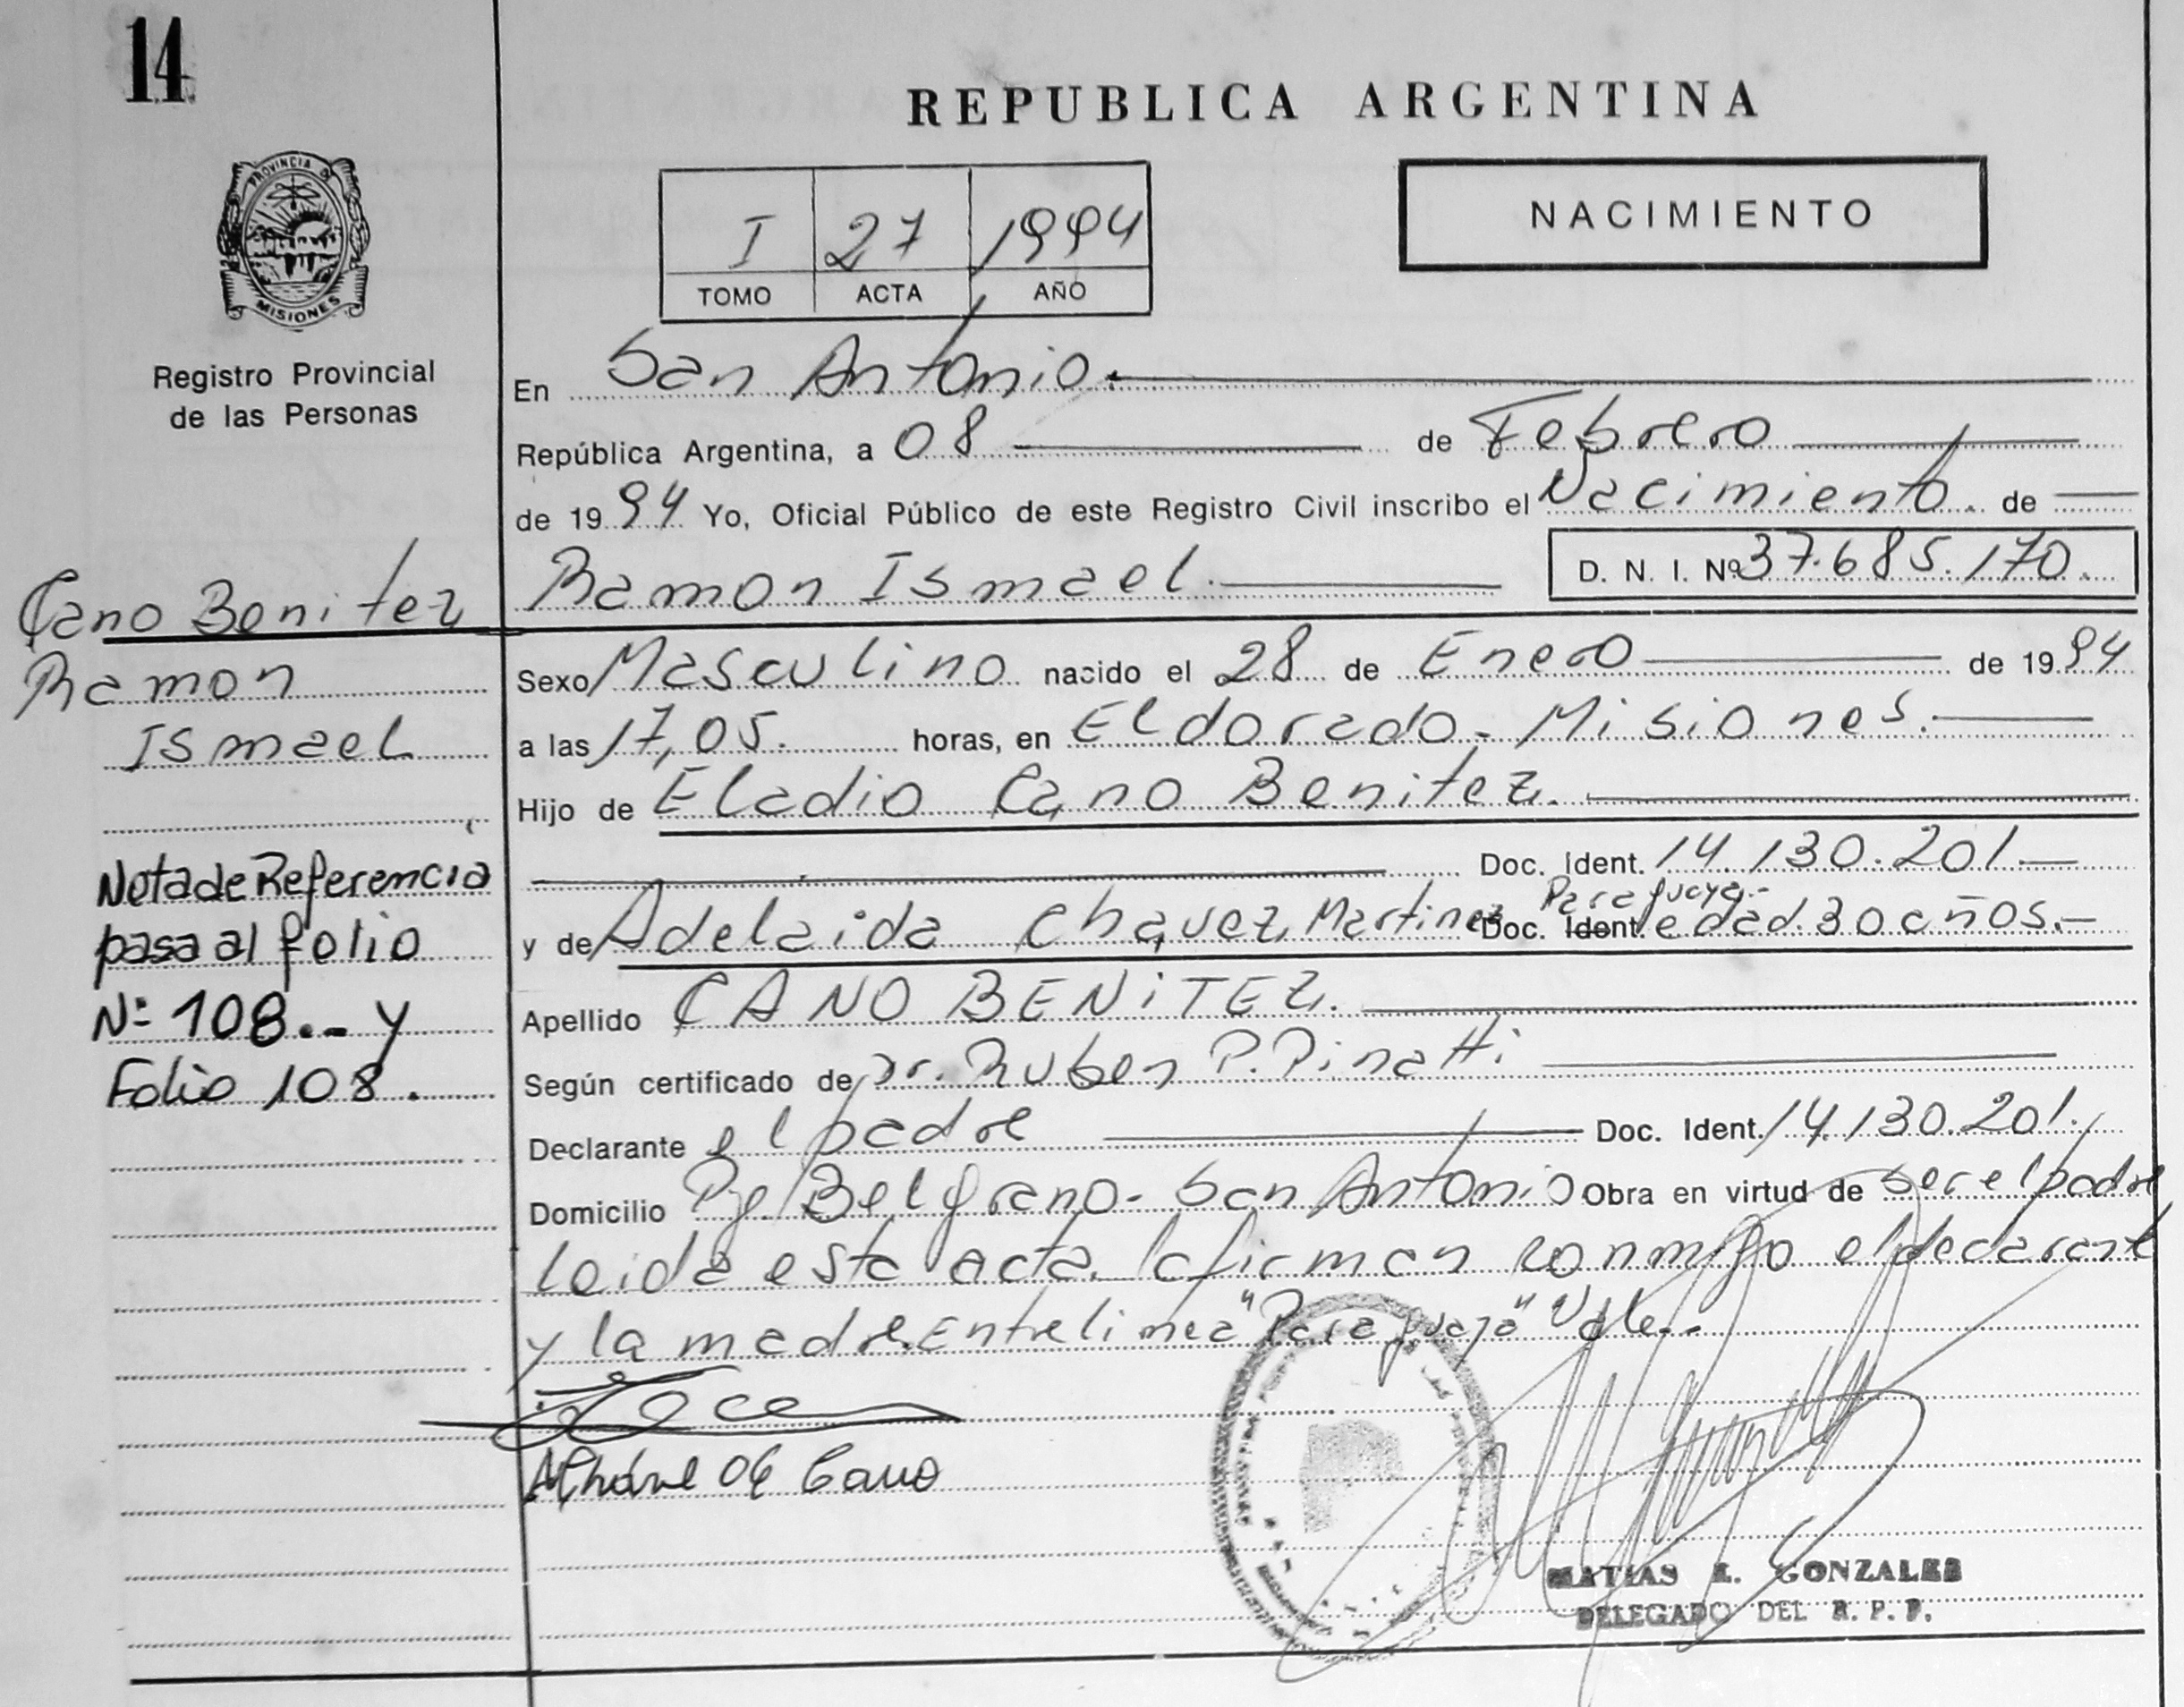 14
REPUBLICA ARGENTINA
PROVINCIA DE
MISIONES
I 27 1994
TOMO ACTA AÑO
NACIMIENTO
Registro Provincial
de las Personas
En San Antonio.
República Argentina, a 08 de Febrero
de 1994 Yo, Oficial Público de este Registro Civil inscribo el Nacimiento. de
Ramon Ismael. D. N. I. Nº 37.685.170.
Cano Benitez
Ramon
Ismael
Nota de Referencia
pasa al folio
Nº 108.- y
Folio 108.
Sexo Masculino nacido el 28 de Enero de 1994
a las 17,05. horas, en Eldorado - Misiones.
Hijo de Eladio Cano Benitez.
Doc. Ident. 14.130.201.-
Paraguaya.-
y de Adelaida Chavez Martinez Doc. Ident. edad. 30 años.-
Apellido CANO BENITEZ.
Según certificado de Dr. Ruben P. Pinatti
Declarante el padre Doc. Ident. 14.130.201.
Domicilio Pje Belgrano - San Antonio Obra en virtud de ser el padre
Leida esta acta, la firman conmigo el declarante
y la madre. Entrelinea "Paraguaya" Vale.-
de Cano
MATIAS E. GONZALEZ
DELEGADO DEL R. P. P.